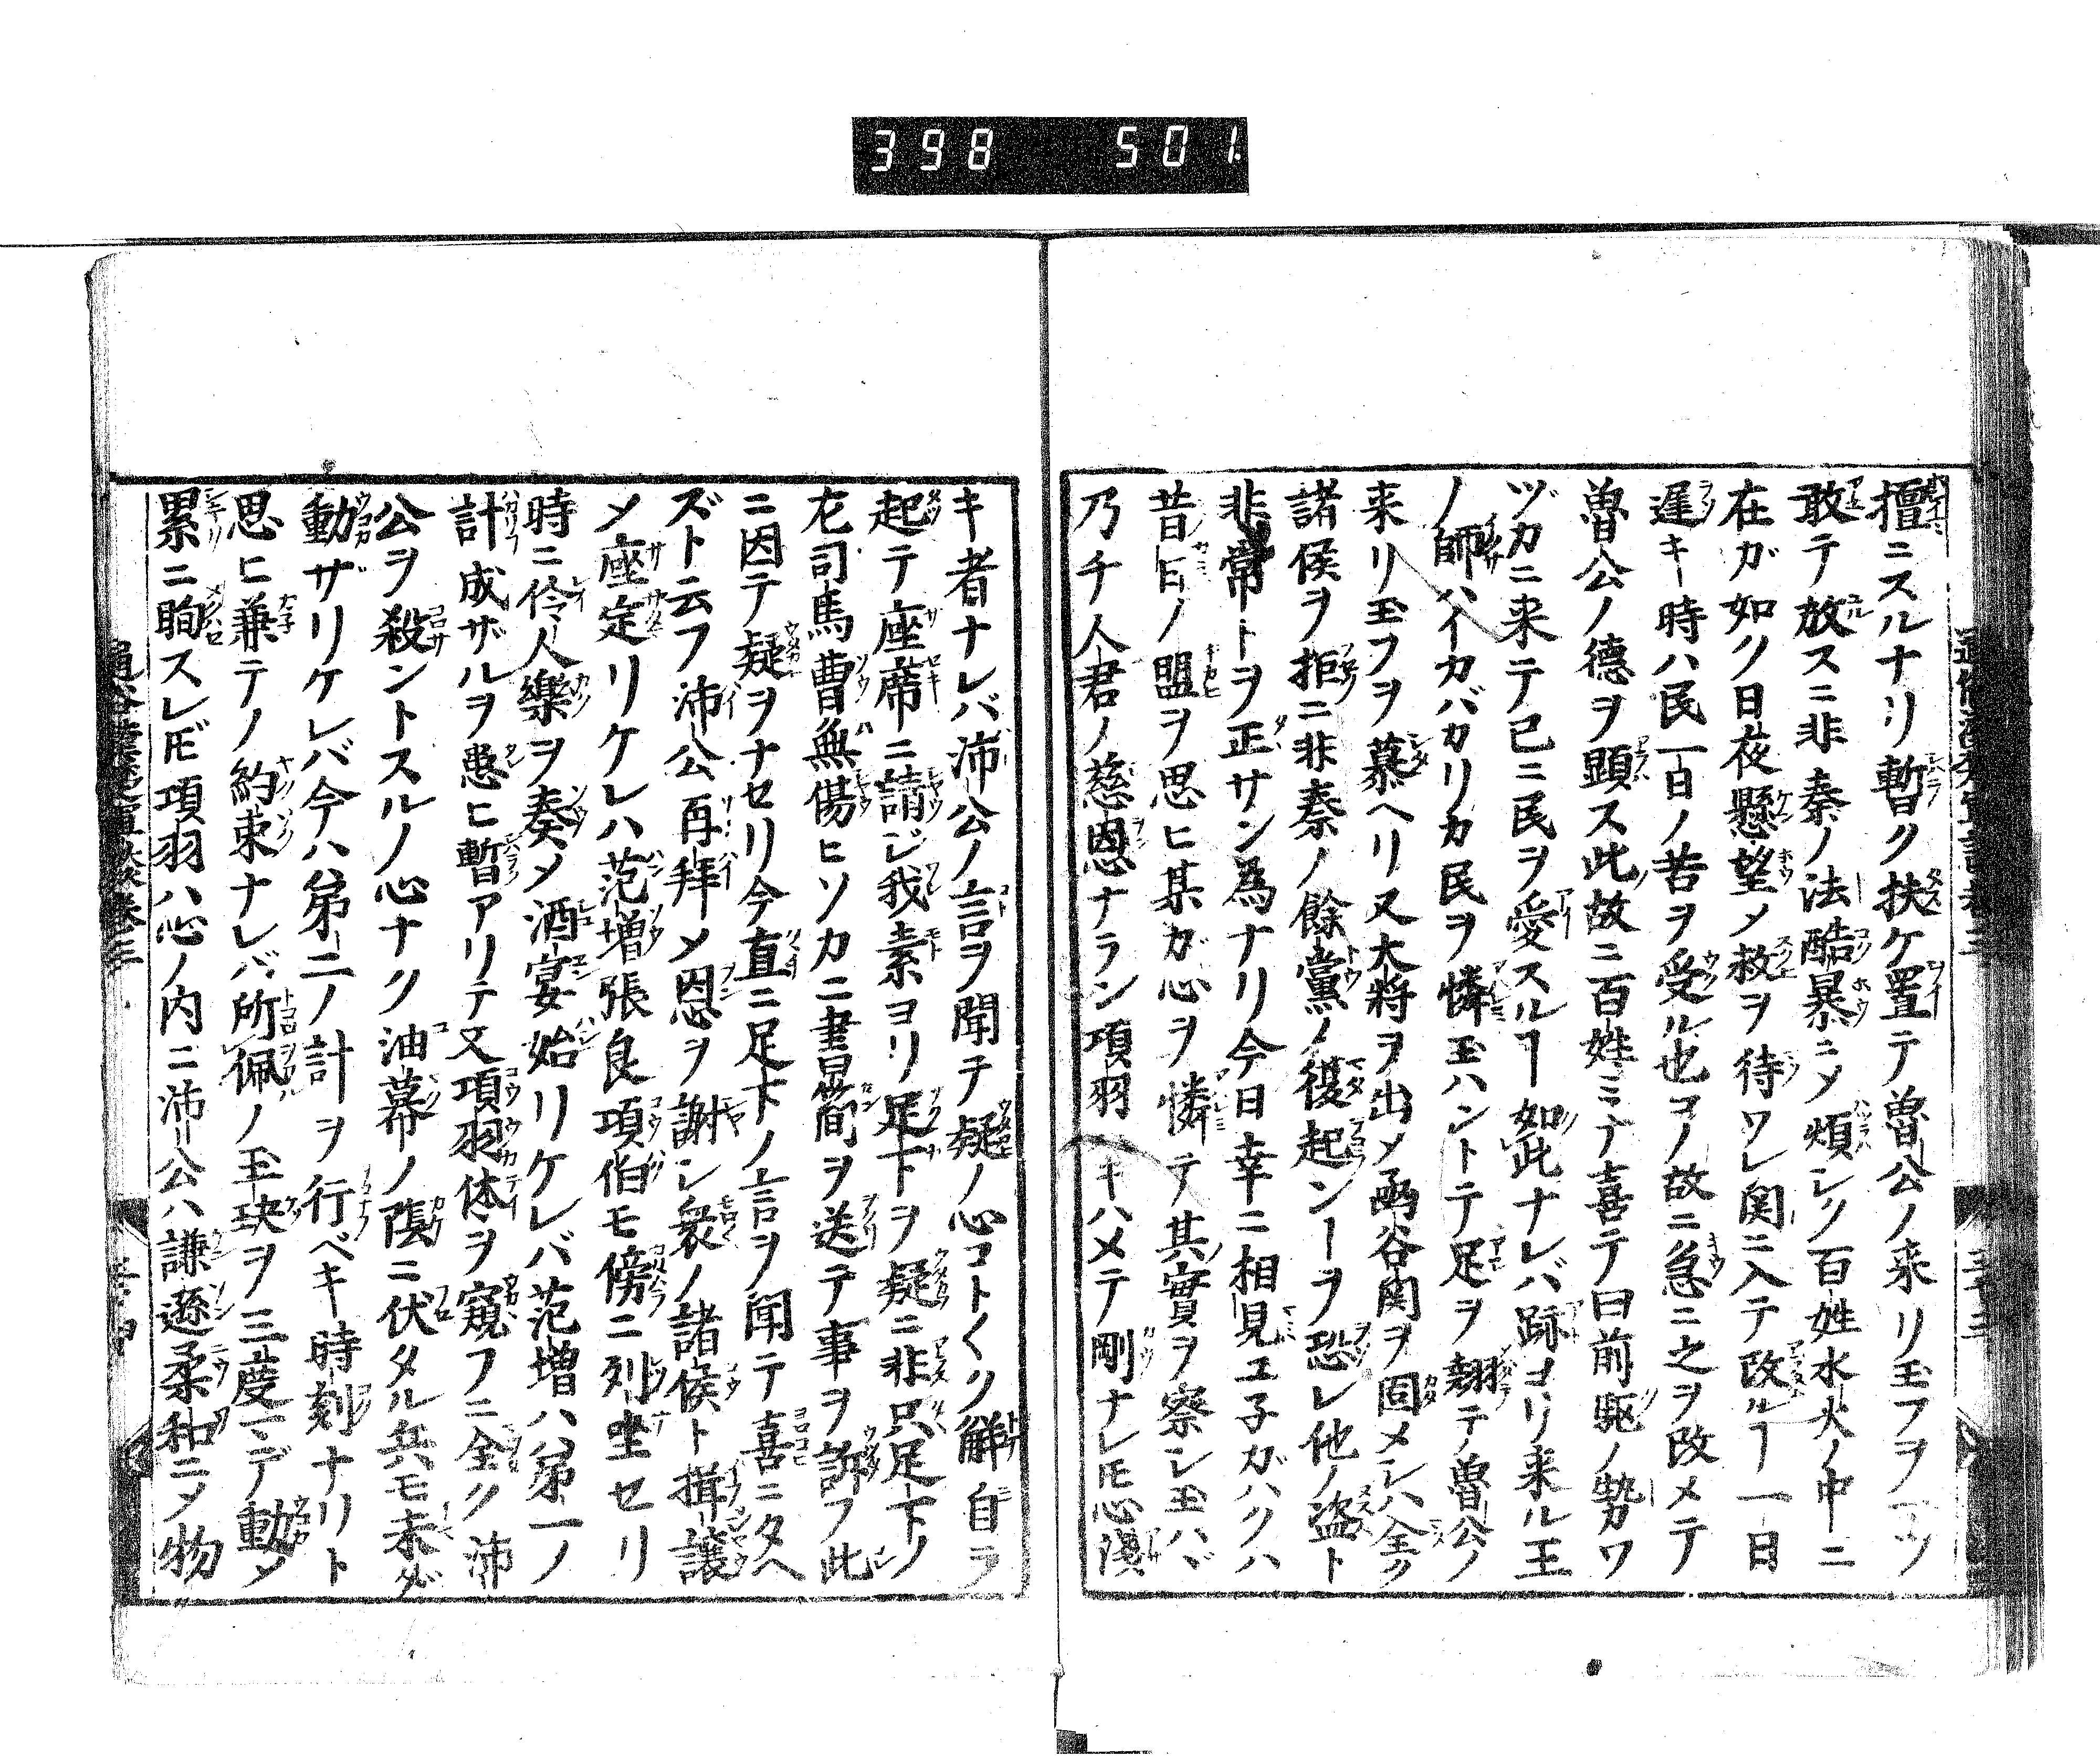 398 501
擅ニスルナリ暫ク扶ケ置テ魯公ノ来リ玉フヲマツ
敢テ放スニ非秦ノ法酷暴ニメ煩レク百姓水火ノ中ニ
在ガ如ク日夜懸望メ救ヲ待ツレ関ニ入テ改ルヿ一日
遅キ時ハ民一百ノ苦ヲ受ル也コノ故ニ急ニ之ヲ改メテ
魯公ノ德ヲ顕ス此故ニ百姓ミナ喜テ曰前駆ノ勢ワ
ヅカニ来テ已ニ民ヲ愛スルヿ如此ナレバ跡ヨリ来ル王
ノ師ハイカバカリカ民ヲ憐玉ハントテ足ヲ翹テ魯公ノ
来リ玉フヲ慕ヘリ又大將ヲ出メ函谷関ヲ固メシハ全ク
諸侯ヲ拒ニ非秦ノ餘黨ノ復起ンヿヲ恐レ他ノ盗ト
非常トヲ正サン為ナリ今日幸ニ相見ヱ子ガハクハ
昔日ノ盟ヲ思ヒ某ガ心ヲ憐テ其實ヲ察シ玉ハヾ
乃チ人君ノ慈恩ナラン項羽キハメテ剛ナレ𪜈心淺
キ者ナレバ沛公ノ言ヲ聞チ疑ノ心コト〱ク解自ラ
起テ座席ニ請ジ我素ヨリ足下ヲ疑ニ非只足下ノ
左司馬曹無傷ヒソカニ書簡ヲ送テ事ヲ訴フ此
ニ因テ疑ヲナセリ今直ニ足下ノ言ヲ聞テ喜ニタヘ
ズト云フ沛公再拜メ恩ヲ謝シ衆ノ諸侯ト揖讓
メ座定リケレハ范增張良項伯モ傍ニ列坐セリ
時ニ伶人樂ヲ奏メ酒宴始リケレバ范増ハ第一ノ
計成ザルヲ患ヒ暫アリテ又項羽体ヲ窺フニ全ク沛
公ヲ殺ントスルノ心ナク油幕ノ陰ニ伏タル兵モ未ダ
動ザリケレバ今ハ第二ノ計ヲ行ベキ時刻ナリト
思ヒ兼テノ約束ナレバ所佩ノ玉玦ヲ三度マデ動メ
累ニ眴スレ𪜈項羽ハ心ノ内ニ沛公ハ謙遜柔和ニメ物